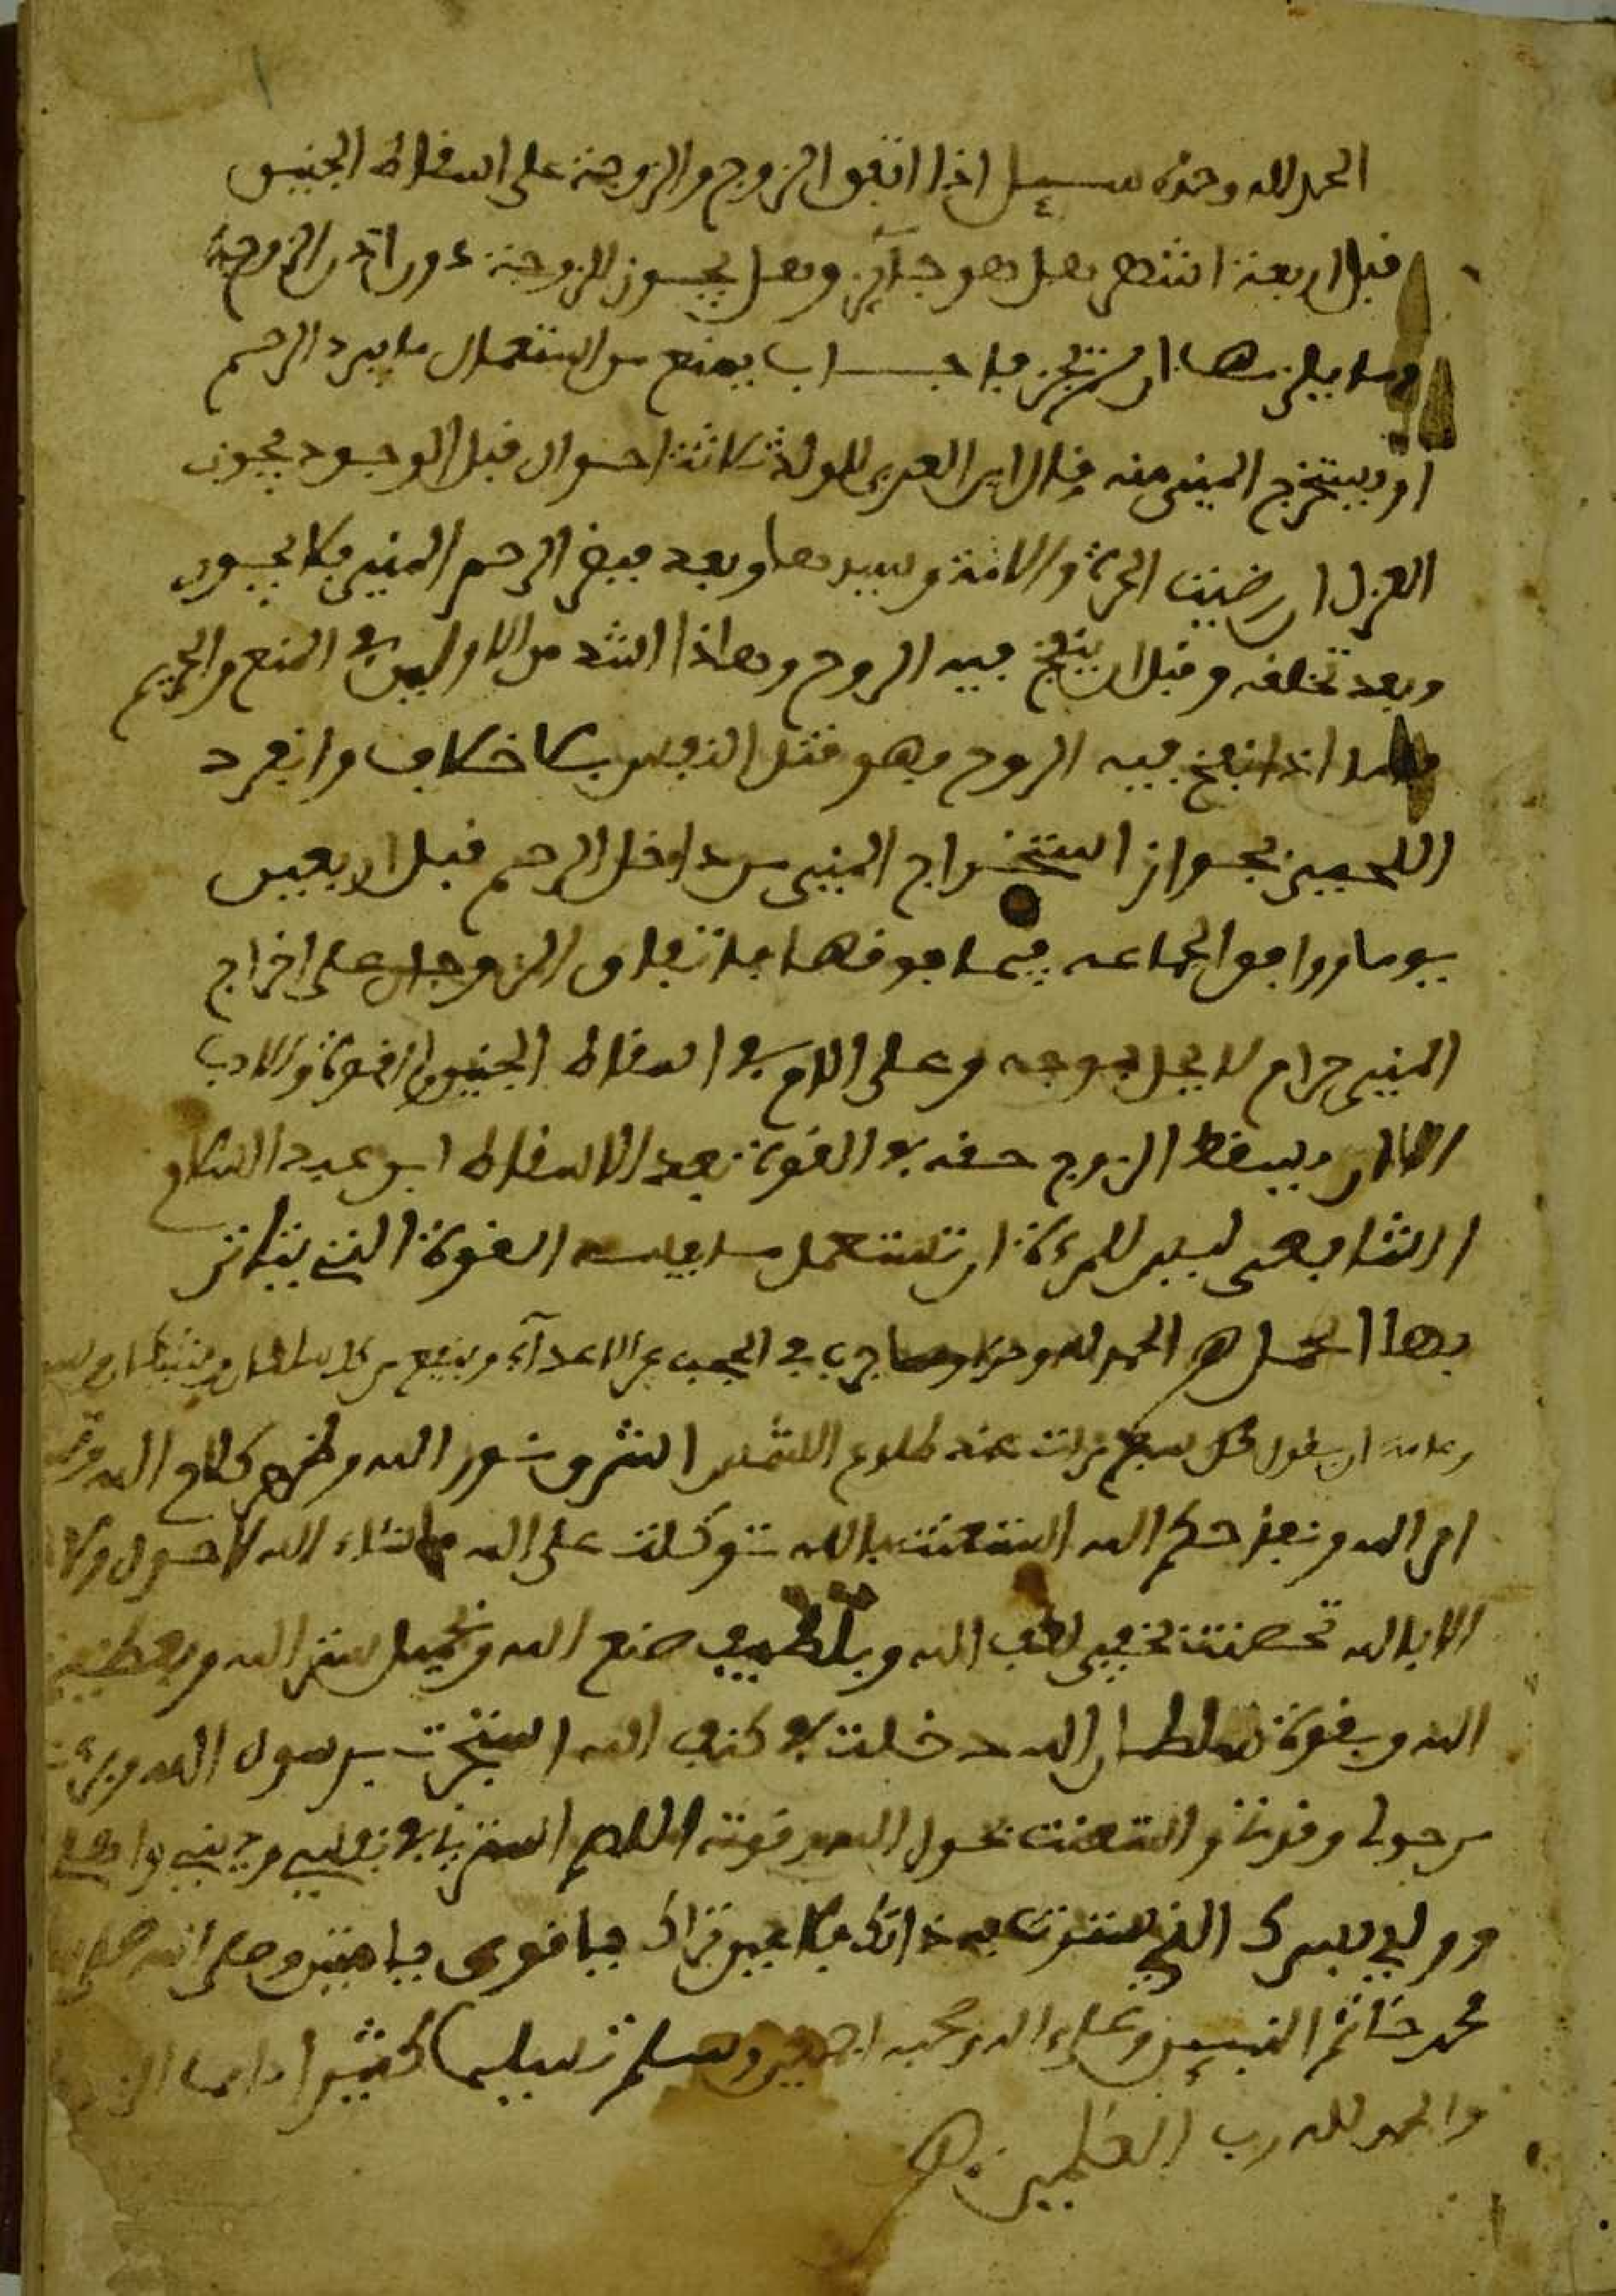 الحمد لله وحده سئل اذا اتفق الزوج والزوجة على اسقاط الجنين
قبل اربعة اشهر هل هو جائز وهل يجوز للزوجة دون اذن الزوج
وما يلزمها ان لم تجز فاجاب يمنع من استعمال ما يبرد الرحم
او يستخرج المني منه قال ابن العربي للولد ثلاثة احوال قبل الوجود يجوز
العزل ان رضيت الحرة والامة وسيدها وبعد قبض الرحم المني فلا يجوز
وبعد تخلقه وقبل ان ينفخ فيه الروح وهاذا اشد من الاولين في المنع والتحريم
فاما اذا نفخ فيه الروح فهو قتل النفس بلا خلاف وانفرد
اللخمي بجواز استخراج المني من داخل الرحم قبل اربعين
يوما ووافق الجماعه فيما فوقها فاتفاق الزوجان على اخراج
المني حرام لا يحل بوجه وعلى الام في اسقاط الجنين الغرة والادب
ويسقط الزوج حقه في الغرة بعد الاسقاط ابن عبد السلام
الشافعي ليس للمرءة ان تستعمل ما يفسد القوة التي يتاتى
بها الحمل اه الحمد لله وحده ومما جرب في الحجب عن الاعداء ويمنع من كل سلطان وشيطان
ان يقول كل سبع مرات عند طلوع الشمس اشرق نور الله وظهر كلام الله
امر الله ونفذ حكم الله استعنت بالله توكلت على الله ما شاء الله لا حول ولا
الا بالله تحصنت بخفي لطف الله وبلطيف صنع الله وبجميل ستر الله وبعظيم
الله وبقوة سلطان الله دخلت في كنف الله استجرت برسول الله وبرئت
من حولي وقوتي واستعنت بحول الله وقوته اللهم استرني في نفسي وديني واهلي
وولدي بسترك الذي سترت به ذاتك فلا عين تراك يا قوي يا متين وصلى الله على
محمد خاتم النبيين وعلى اله وصحبه اجمعين وسلم تسليما كثيرا دايما
والحمد لله رب العلمين اه